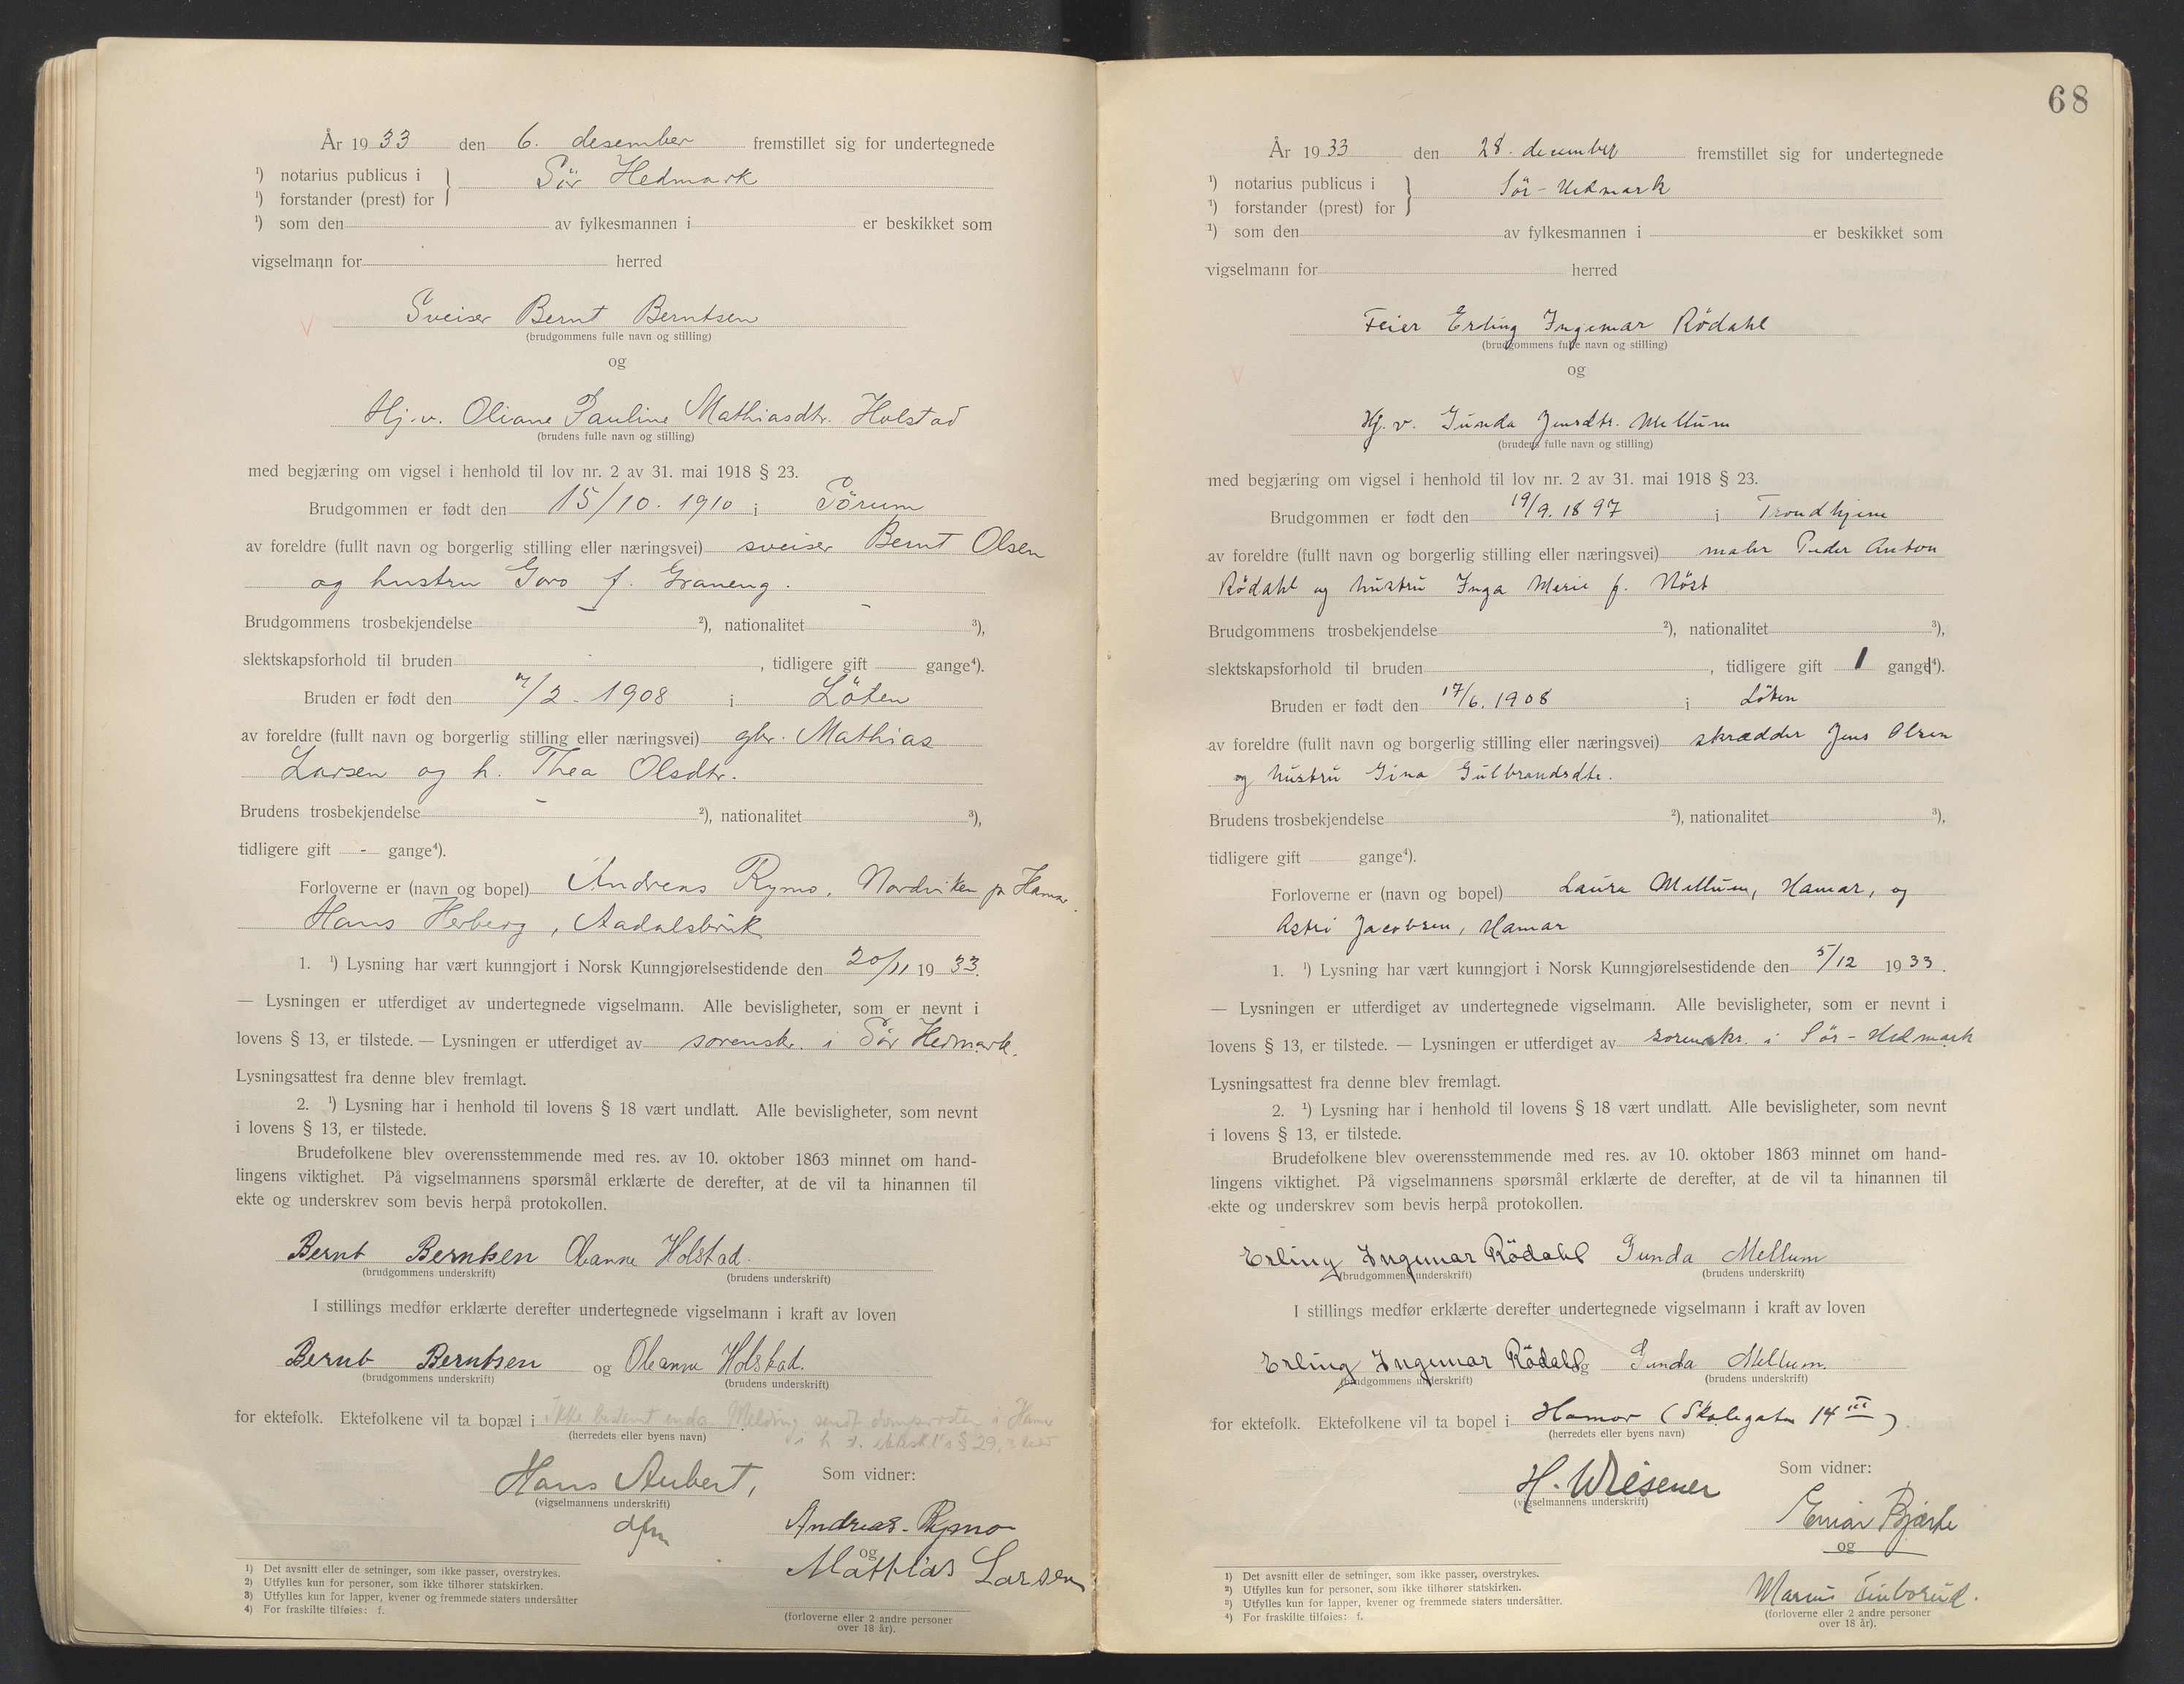 År 1933 den 6. desember fremstillet sig for undertegnede
¹) notarius publicus i } Sör Hedmark
¹) forstander (prest) for
¹) som den av fylkesmannen i er beskikket som
vigselmann for herred
Sveiser Bernt Berntsen
(brudgommens fulle navn og stilling)
og
Hj.v. Oliane Pauline Mathiasdtr. Holstad
(brudens fulle navn og stilling)
med begjæring om vigsel i henhold til lov nr. 2 av 31. mai 1918 § 23.
Brudgommen er født den 15/10. 1910 i Sörum
av foreldre (fullt navn og borgerlig stilling eller næringsvei) sveiser Bernt Olsen
og hustru Goro f. Graneng.
Brudgommens trosbekjendelse — ²), nationalitet — ³),
slektskapsforhold til bruden , tidligere gift gange⁴).
Bruden er født den /2 - 1908 i Löten
av foreldre (fullt navn og borgerlig stilling eller næringsvei) gbr. Mathias
Larsen og h. Thea Olsdtr.
Brudens trosbekjendelse - ²), nationalitet ³),
tidligere gift - gange⁴).
Forloverne er (navn og bopel) Andreas Rymo, Nordviken pr Hamar.
Hans Herberg, Aadalsbruk
1. ¹) Lysning har vært kunngjort i Norsk Kunngjørelsestidende den 20/11 1933.
— Lysningen er utferdiget av undertegnede vigselmann. Alle bevisligheter, som er nevnt i
lovens § 13, er tilstede. — Lysningen er utferdiget av sorenskr. i Sör Hedmark.
Lysningsattest fra denne blev fremlagt.
2. ¹) Lysning har i henhold til lovens § 18 vært undlatt. Alle bevisligheter, som nevnt
i lovens § 13, er tilstede.
Brudefolkene blev overensstemmende med res. av 10. oktober 1863 minnet om hand-
lingens viktighet. På vigselmannens spørsmål erklærte de derefter, at de vil ta hinannen til
ekte og underskrev som bevis herpå protokollen.
Bernt Berntsen Oleanne Holstad.
(brudgommens underskrift) (brudens underskrift)
I stillings medfør erklærte derefter undertegnede vigselmann i kraft av loven
Bernt Berntsen og Oleanne Holstad.
(brudgommens underskrift) (brudens underskrift)
for ektefolk. Ektefolkene vil ta bopæl i Ikke bestemt enda. Melding sendt domprosten i Hamar
(herredets eller byens navn) i h. t. ekteskl's § 29, 3 ledd
Hans Aubert,
(vigselmannens underskrift)
dfm
Som vidner:
Andreas Rymo
og
Mathias Larsen
(forloverne eller 2 andre personer
over 18 år).
1) Det avsnitt eller de setninger, som ikke passer, overstrykes.
2) Utfylles kun for personer, som ikke tilhører statskirken.
3) Utfylles kun for lapper, kvener og fremmede staters undersåtter
4) For fraskilte tilføies: f.
68
År 1933 den 28. december fremstillet sig for undertegnede
¹) notarius publicus i } Sör-Hedmark
¹) forstander (prest) for
¹) som den av fylkesmannen i er beskikket som
vigselmann for herred
Feier Erling Ingemar Rödahl
(brudgommens fulle navn og stilling)
og
Hj. v. Gunda Jensdtr. Mellum
(brudens fulle navn og stilling)
med begjæring om vigsel i henhold til lov nr. 2 av 31. mai 1918 § 23.
Brudgommen er født den 19/9. 1897 i Trondhjem
av foreldre (fullt navn og borgerlig stilling eller næringsvei) maler Peder Anton
Rödahl og hustru Inga Marie f. Nöst
Brudgommens trosbekjendelse ²), nationalitet ³),
slektskapsforhold til bruden , tidligere gift 1 gang⁴).
Bruden er født den 17/6. 1908 i Löten
av foreldre (fullt navn og borgerlig stilling eller næringsvei) skrædder Jens Olsen
og hustru Gina Gulbrandsdtr.
Brudens trosbekjendelse ²), nationalitet ³),
tidligere gift gange⁴).
Forloverne er (navn og bopel) Laura Mellum, Hamar, og
Astri Jacobsen, Hamar
1. ¹) Lysning har vært kunngjort i Norsk Kunngjørelsestidende den 5/12 1933.
— Lysningen er utferdiget av undertegnede vigselmann. Alle bevisligheter, som er nevnt i
lovens § 13, er tilstede. — Lysningen er utferdiget av sorenskr. i Sör-Hedmark
Lysningsattest fra denne blev fremlagt.
2. ¹) Lysning har i henhold til lovens § 18 vært undlatt. Alle bevisligheter, som nevnt
i lovens § 13, er tilstede.
Brudefolkene blev overensstemmende med res. av 10. oktober 1863 minnet om hand-
lingens viktighet. På vigselmannens spørsmål erklærte de derefter, at de vil ta hinannen til
ekte og underskrev som bevis herpå protokollen.
Erling Ingemar Rödahl Gunda Mellum
(brudgommens underskrift) (brudens underskrift)
I stillings medfør erklærte derefter undertegnede vigselmann i kraft av loven
Erling Ingemar Rödahl og Gunda Mellum.
(brudgommens underskrift) (brudens underskrift)
for ektefolk. Ektefolkene vil ta bopel i Hamar (Skolegaten 14 III)
(herredets eller byens navn)
H. Wiesener
(vigselmannens underskrift)
Som vidner:
Einar Bjærke
og
Marius
(forloverne eller 2 andre personer
over 18 år).
1) Det avsnitt eller de setninger, som ikke passer, overstrykes.
2) Utfylles kun for personer, som ikke tilhører statskirken.
3) Utfylles kun for lapper, kvener og fremmede staters undersåtter.
4) For fraskilte tilføies: f.